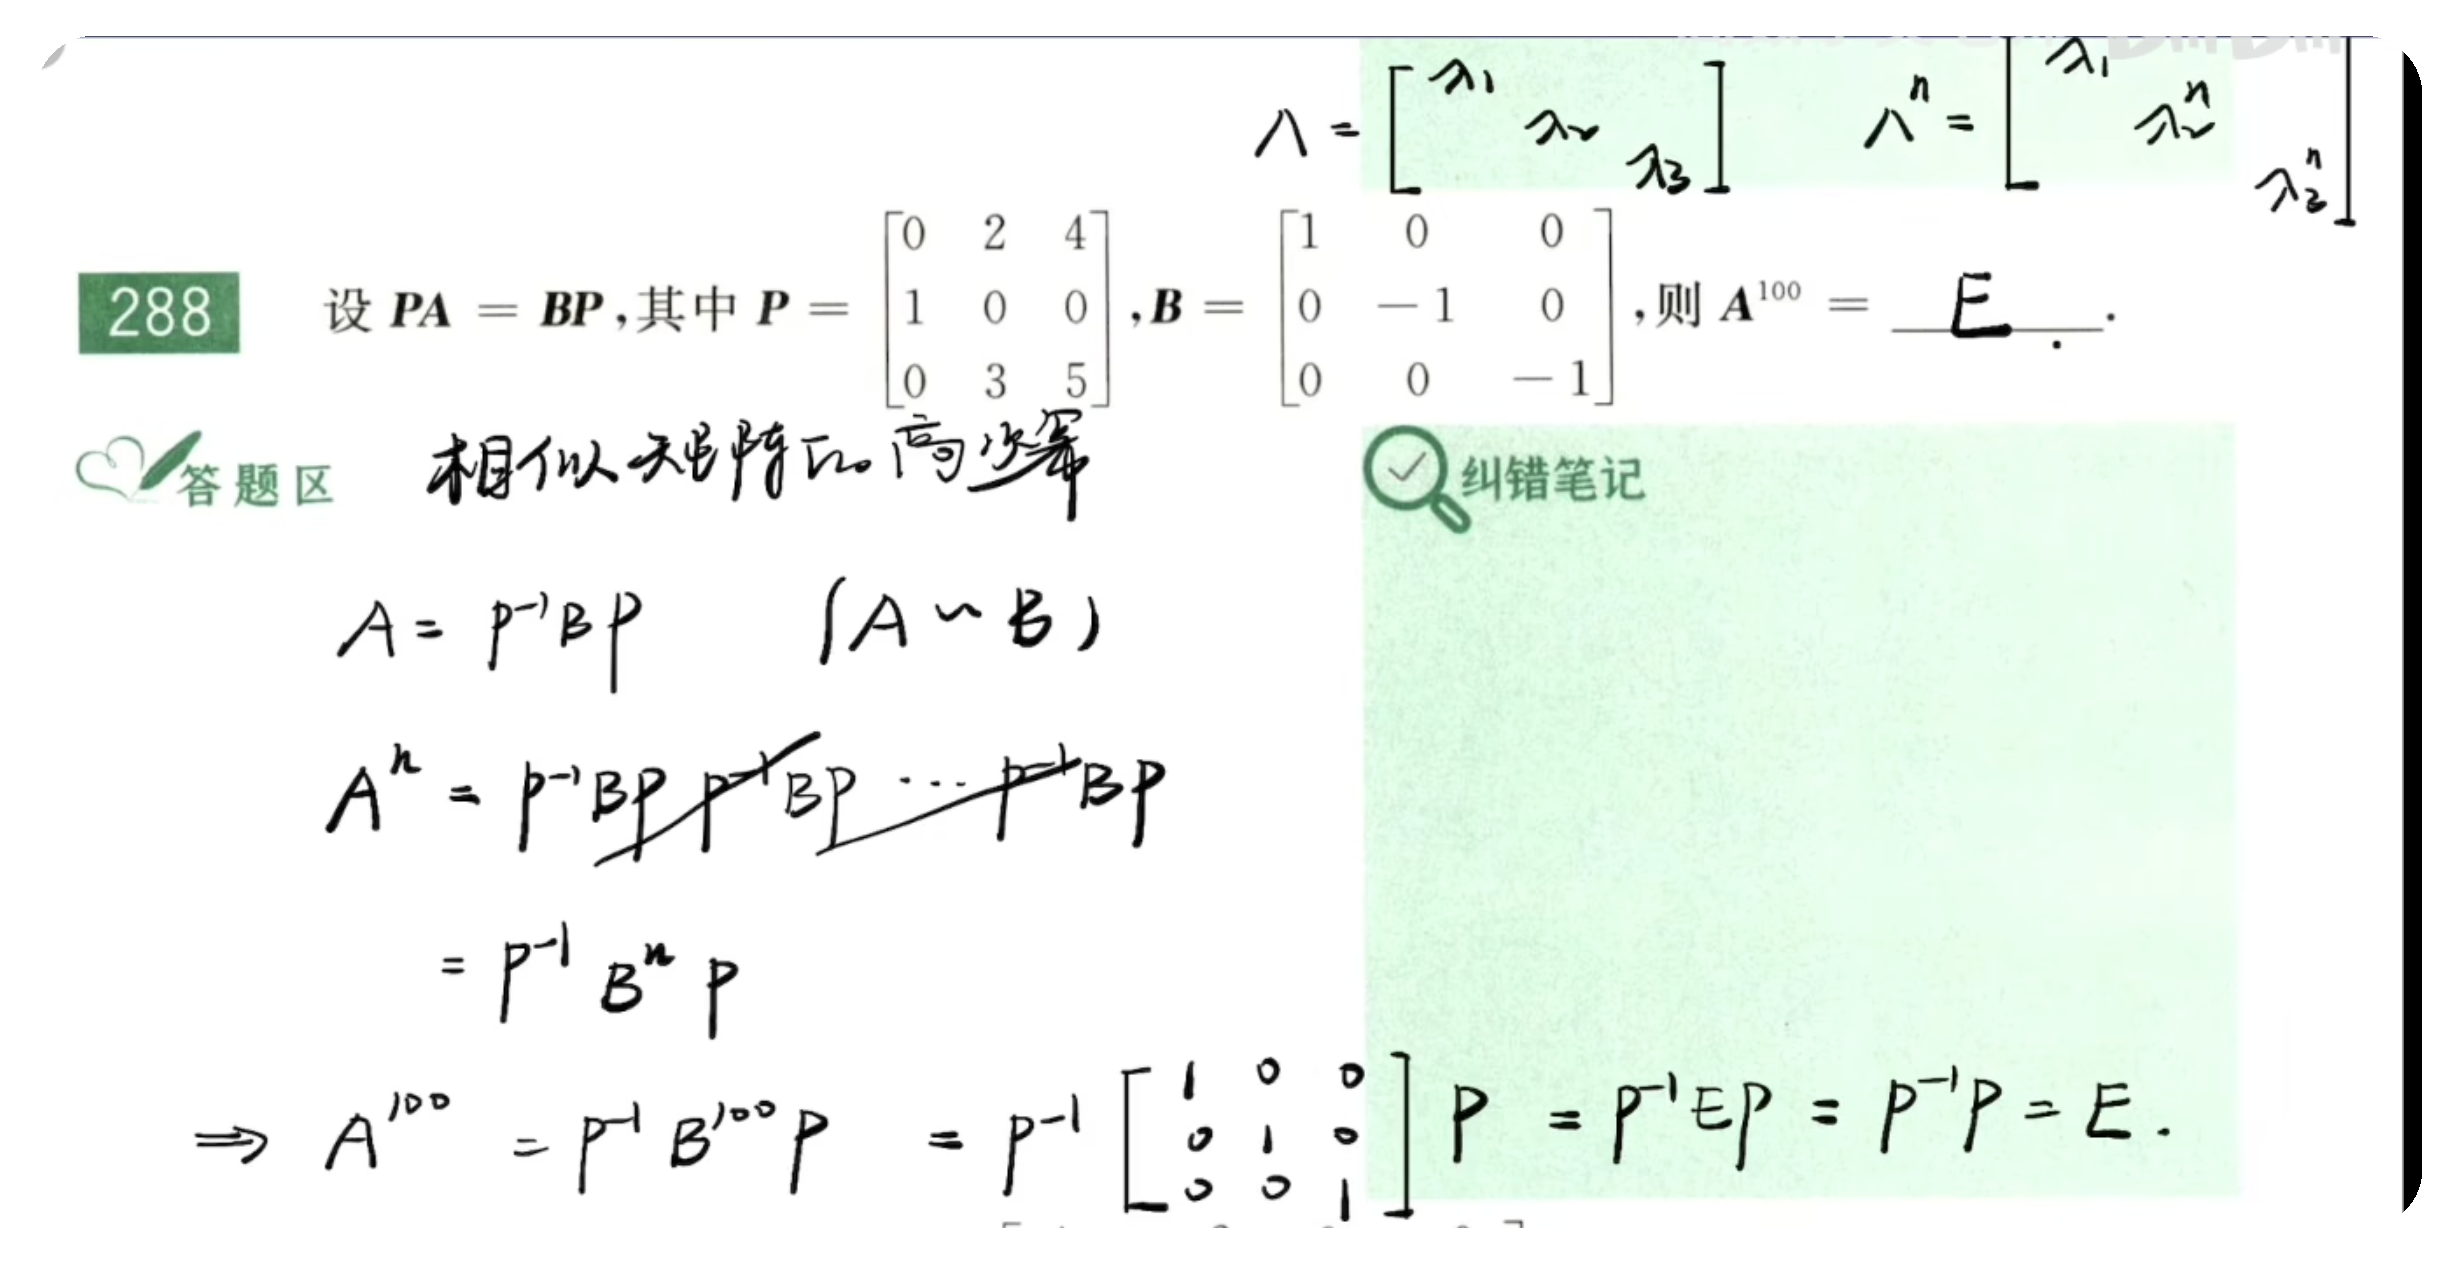 Λ = [λ1 λ2 λ3] Λ^n = [λ1 λ2^n λ3^n]
288 设 PA = BP,其中 P = [0 2 4; 1 0 0; 0 3 5],B = [1 0 0; 0 -1 0; 0 0 -1],则 A^100 = E.
答题区 相似矩阵的高次幂 纠错笔记
A = P^-1 B P (A ~ B)
A^n = P^-1 B P P^-1 B P ... P^-1 B P
= P^-1 B^n P
⇒ A^100 = P^-1 B^100 P = P^-1 [1 0 0; 0 1 0; 0 0 1] P = P^-1 E P = P^-1 P = E.